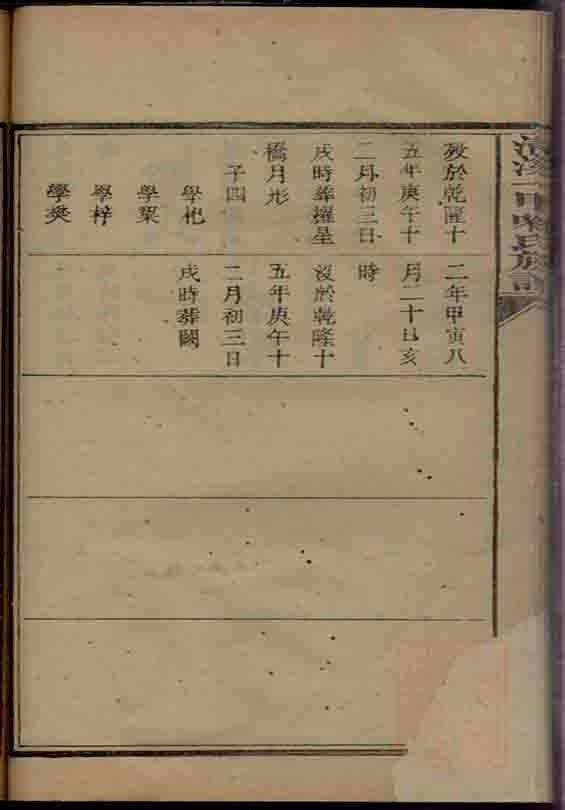 歿於乾隆十
五年庚午十
二月初三日
戌時葬擢星
橋月形
子四
學杞
學渠
學梓
學樊
二年甲寅八
月二十日亥
時
沒於乾隆十
五年庚午十
二月初三日
戌時葬闕
氏族譜